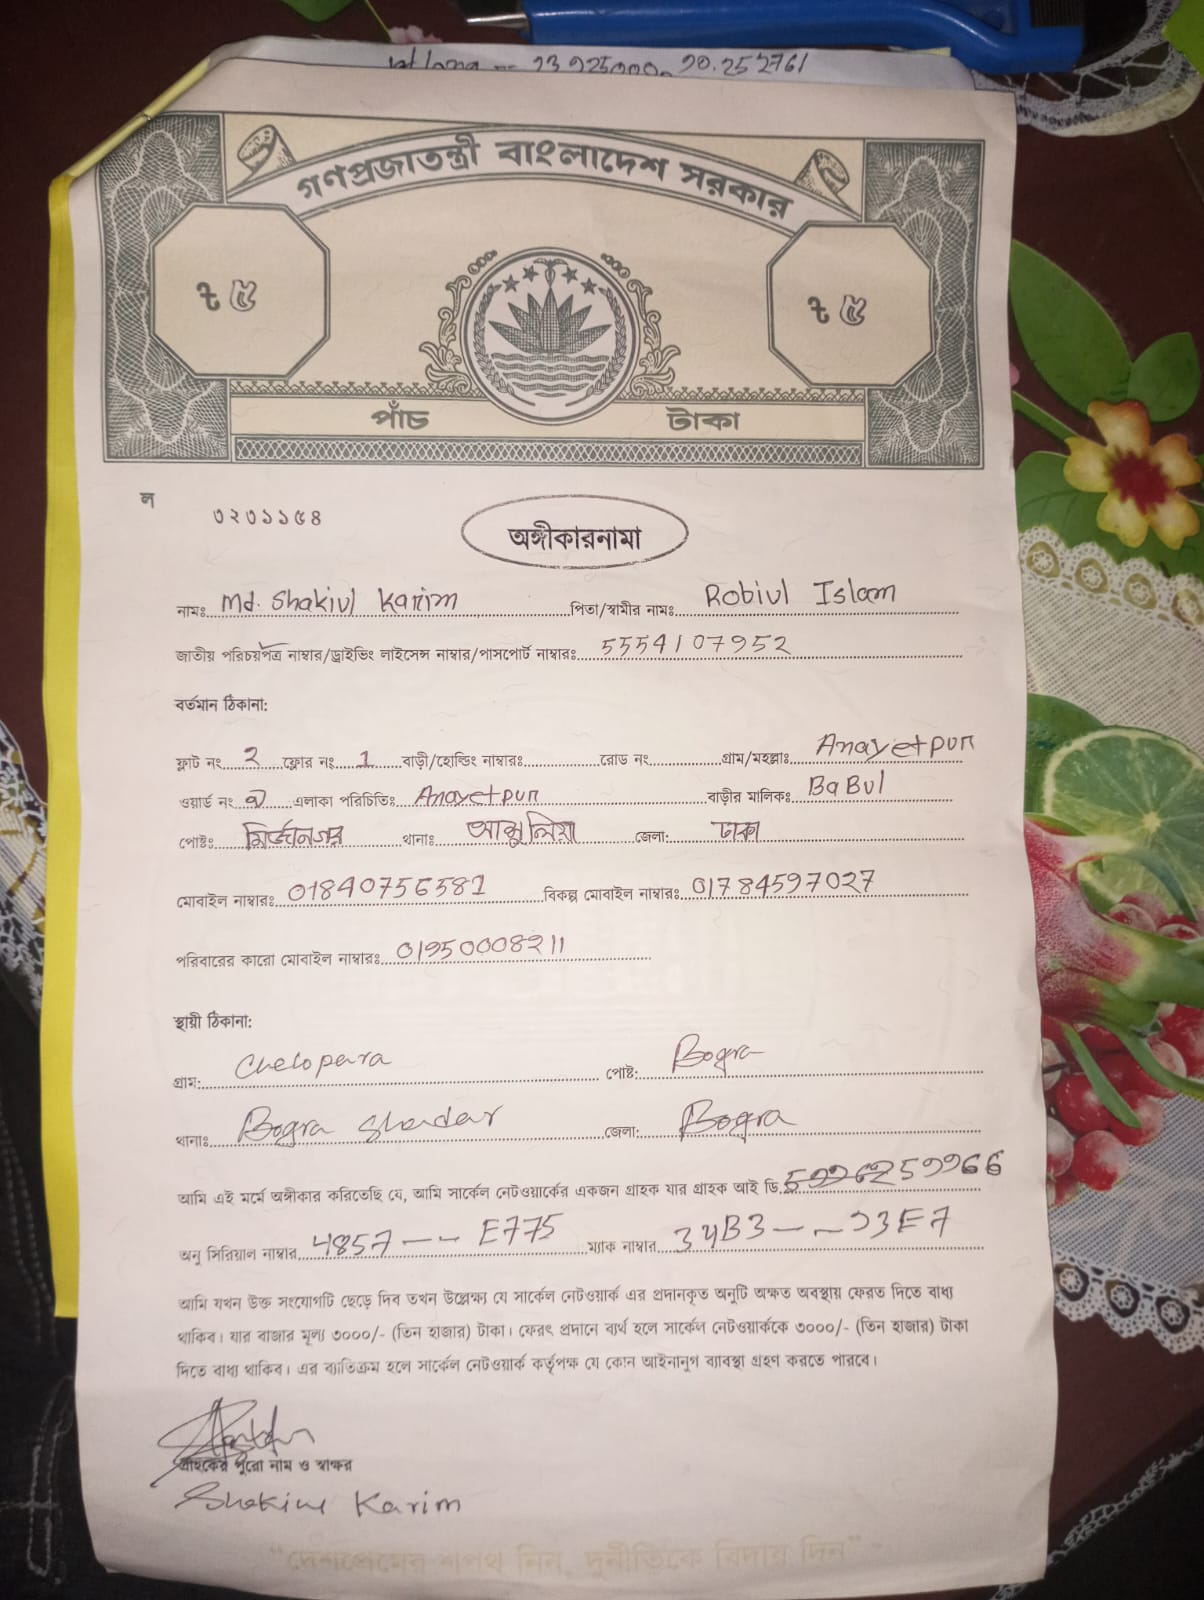 গণপ্রজাতন্ত্রী বাংলাদেশ সরকার
৳ ৫ ৳ ৫
পাঁচ টাকা
ল
৩২৩১১৫৪
অঙ্গীকারনামা
নামঃ Md. Shakiul Karim পিতা/স্বামীর নামঃ Robiul Islam
জাতীয় পরিচয়পত্র নাম্বার/ড্রাইভিং লাইসেন্স নাম্বার/পাসপোর্ট নাম্বারঃ 5554107952
বর্তমান ঠিকানা:
ফ্লাট নং 2 ফ্লোর নং 1 বাড়ী/হোল্ডিং নাম্বারঃ রোড নং গ্রাম/মহল্লাঃ Anayetpur
ওয়ার্ড নং এলাকা পরিচিতিঃ Anayetpur বাড়ীর মালিকঃ BaBul
পোষ্টঃ মির্জানগর থানাঃ আশুলিয়া জেলা: ঢাকা
মোবাইল নাম্বারঃ 01840756581 বিকল্প মোবাইল নাম্বারঃ 01784597027
পরিবারের কারো মোবাইল নাম্বারঃ 01950008211
স্থায়ী ঠিকানা:
গ্রাম: Chelopara পোষ্ট: Bogra
থানাঃ Bogra Shadar জেলা: Bogra
আমি এই মর্মে অঙ্গীকার করিতেছি যে, আমি সার্কেল নেটওয়ার্কের একজন গ্রাহক যার গ্রাহক আই ডি.
অনু সিরিয়াল নাম্বার 4857 -- E775 ম্যাক নাম্বার
আমি যখন উক্ত সংযোগটি ছেড়ে দিব তখন উল্লেক্ষ্য যে সার্কেল নেটওয়ার্ক এর প্রদানকৃত অনুটি অক্ষত অবস্থায় ফেরত দিতে বাধ্য
থাকিব। যার বাজার মূল্য ৩০০০/- (তিন হাজার) টাকা। ফেরৎ প্রদানে ব্যর্থ হলে সার্কেল নেটওয়ার্ককে ৩০০০/- (তিন হাজার) টাকা
দিতে বাধ্য থাকিব। এর ব্যতিক্রম হলে সার্কেল নেটওয়ার্ক কর্তৃপক্ষ যে কোন আইনানুগ ব্যাবস্থা গ্রহণ করতে পারবে।
গ্রাহকের পুরো নাম ও স্বাক্ষর
Shakiul Karim
"দেশপ্রেমের শপথ নিন, দুর্নীতিকে বিদায় দিন"